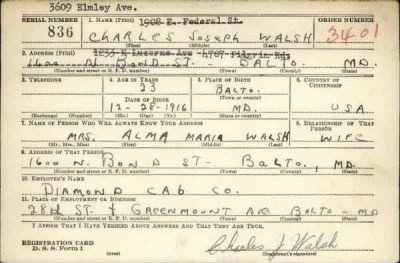 3609 Elmley Ave.
SERIAL NUMBER 1. NAME (Print) 1908 E. Federal St. ORDER NUMBER
836 CHARLES JOSEPH WALSH 3401
(First) (Middle) (Last)
1233 N Luzerne Ave 4707 Pilgrim Rd.
2. ADDRESS (Print)
1600 N. BOND ST- BALTO. MD.
(Number and street or R. F. D. number) (Town) (County) (State)
3. TELEPHONE 4. AGE IN YEARS 5. PLACE OF BIRTH 6. COUNTRY OF CITIZENSHIP
23 BALTO.
DATE OF BIRTH (Town or county)
12-28-1916 MD. USA
(Exchange) (Number) (Mo.) (Day) (Yr.) (State or country)
7. NAME OF PERSON WHO WILL ALWAYS KNOW YOUR ADDRESS 8. RELATIONSHIP OF THAT PERSON
MRS. ALMA MARIA WALSH WIFE
(Mr., Mrs., Miss) (First) (Middle) (Last)
9. ADDRESS OF THAT PERSON
1600 N. BOND ST- BALTO., MD.
(Number and street or R. F. D. number) (Town) (County) (State)
10. EMPLOYER'S NAME
DIAMOND CAB CO.
11. PLACE OF EMPLOYMENT OR BUSINESS
28th ST. & GREENMOUNT AVE BALTO - MD
(Number and street or R. F. D. number) (Town) (County) (State)
I AFFIRM THAT I HAVE VERIFIED ABOVE ANSWERS AND THAT THEY ARE TRUE.
REGISTRATION CARD
D. S. S. Form 1 (over) Charles J Walsh
(Registrant's signature)